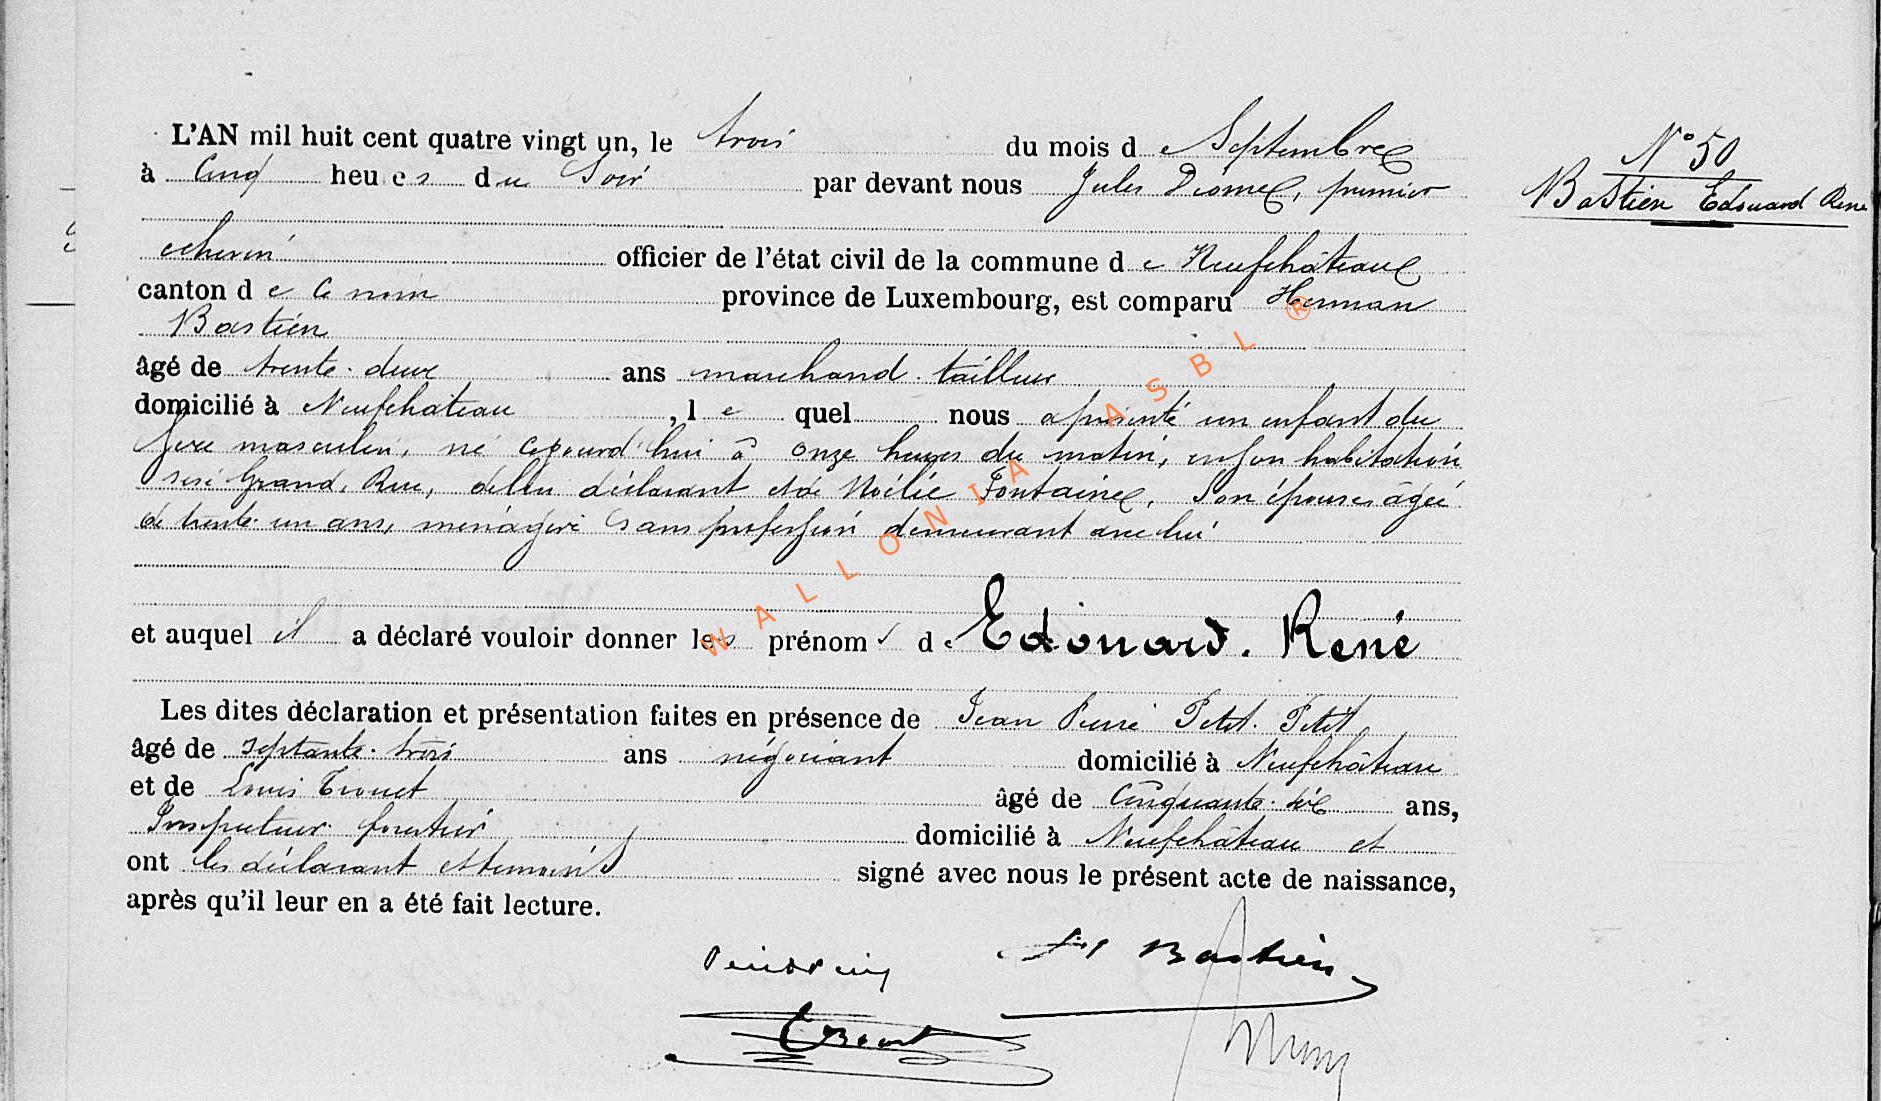 N° 50
Bastien Edouard René
L'AN mil huit cent quatre vingt un, le trois du mois de Septembre
à Cinq heures du Soir par devant nous Jules premier
echevin officier de l'état civil de la commune de Neufchâteau
canton de ce nom province de Luxembourg, est comparu Herman
Bastien
âgé de trente-deux ans marchand-tailleur
domicilié à Neufchâteau, lequel nous a présenté un enfant du
sexe masculin, né cejourd'hui à onze heures du matin, en son habitation
sise Grand, Rue, de lui déclarant et de Noélie Fontaine, son épouse âgée
de trente-un ans, ménagère sans profession demeurant avec lui
et auquel il a déclaré vouloir donner les prénoms de Edouard. René
Les dites déclaration et présentation faites en présence de Jean Pierre Petit. Petit
âgé de septante-trois ans négociant domicilié à Neufchâteau
et de Louis âgé de Cinquante-six ans,
Inspecteur forestier domicilié à Neufchâteau et
ont les déclarant et témoins signé avec nous le présent acte de naissance,
après qu'il leur en a été fait lecture.
Bastien
WALLONIA ASBL ®